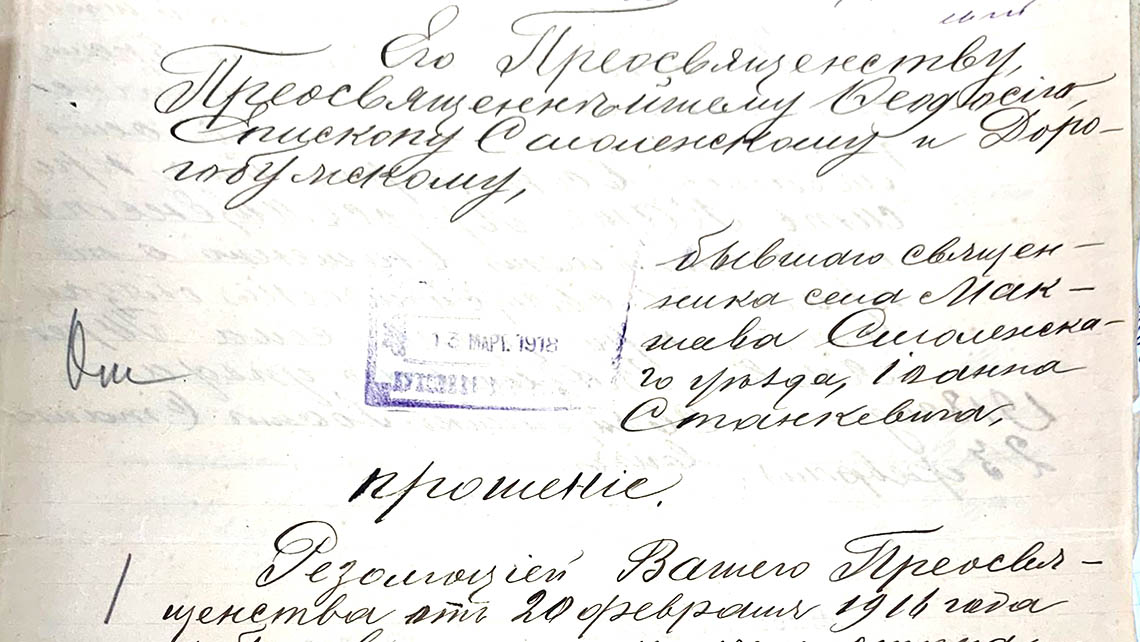 Его Преосвященству,
Преосвященнѣйшему Ѳеодосію,
Епископу Смоленскому и Доро-
гобужскому,
бывшаго священ-
ника села Мак-
шева Смоленска-
го уѣзда, Іоанна
Станкевича,
15 МАРТ. 1918
прошеніе.
Резолюціей Вашего Преосвя-
щенства отъ 20 февраля 1916 года